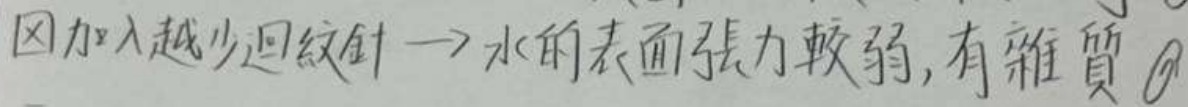 因加入越少迴紋針→水的表面張力較弱,有雜質